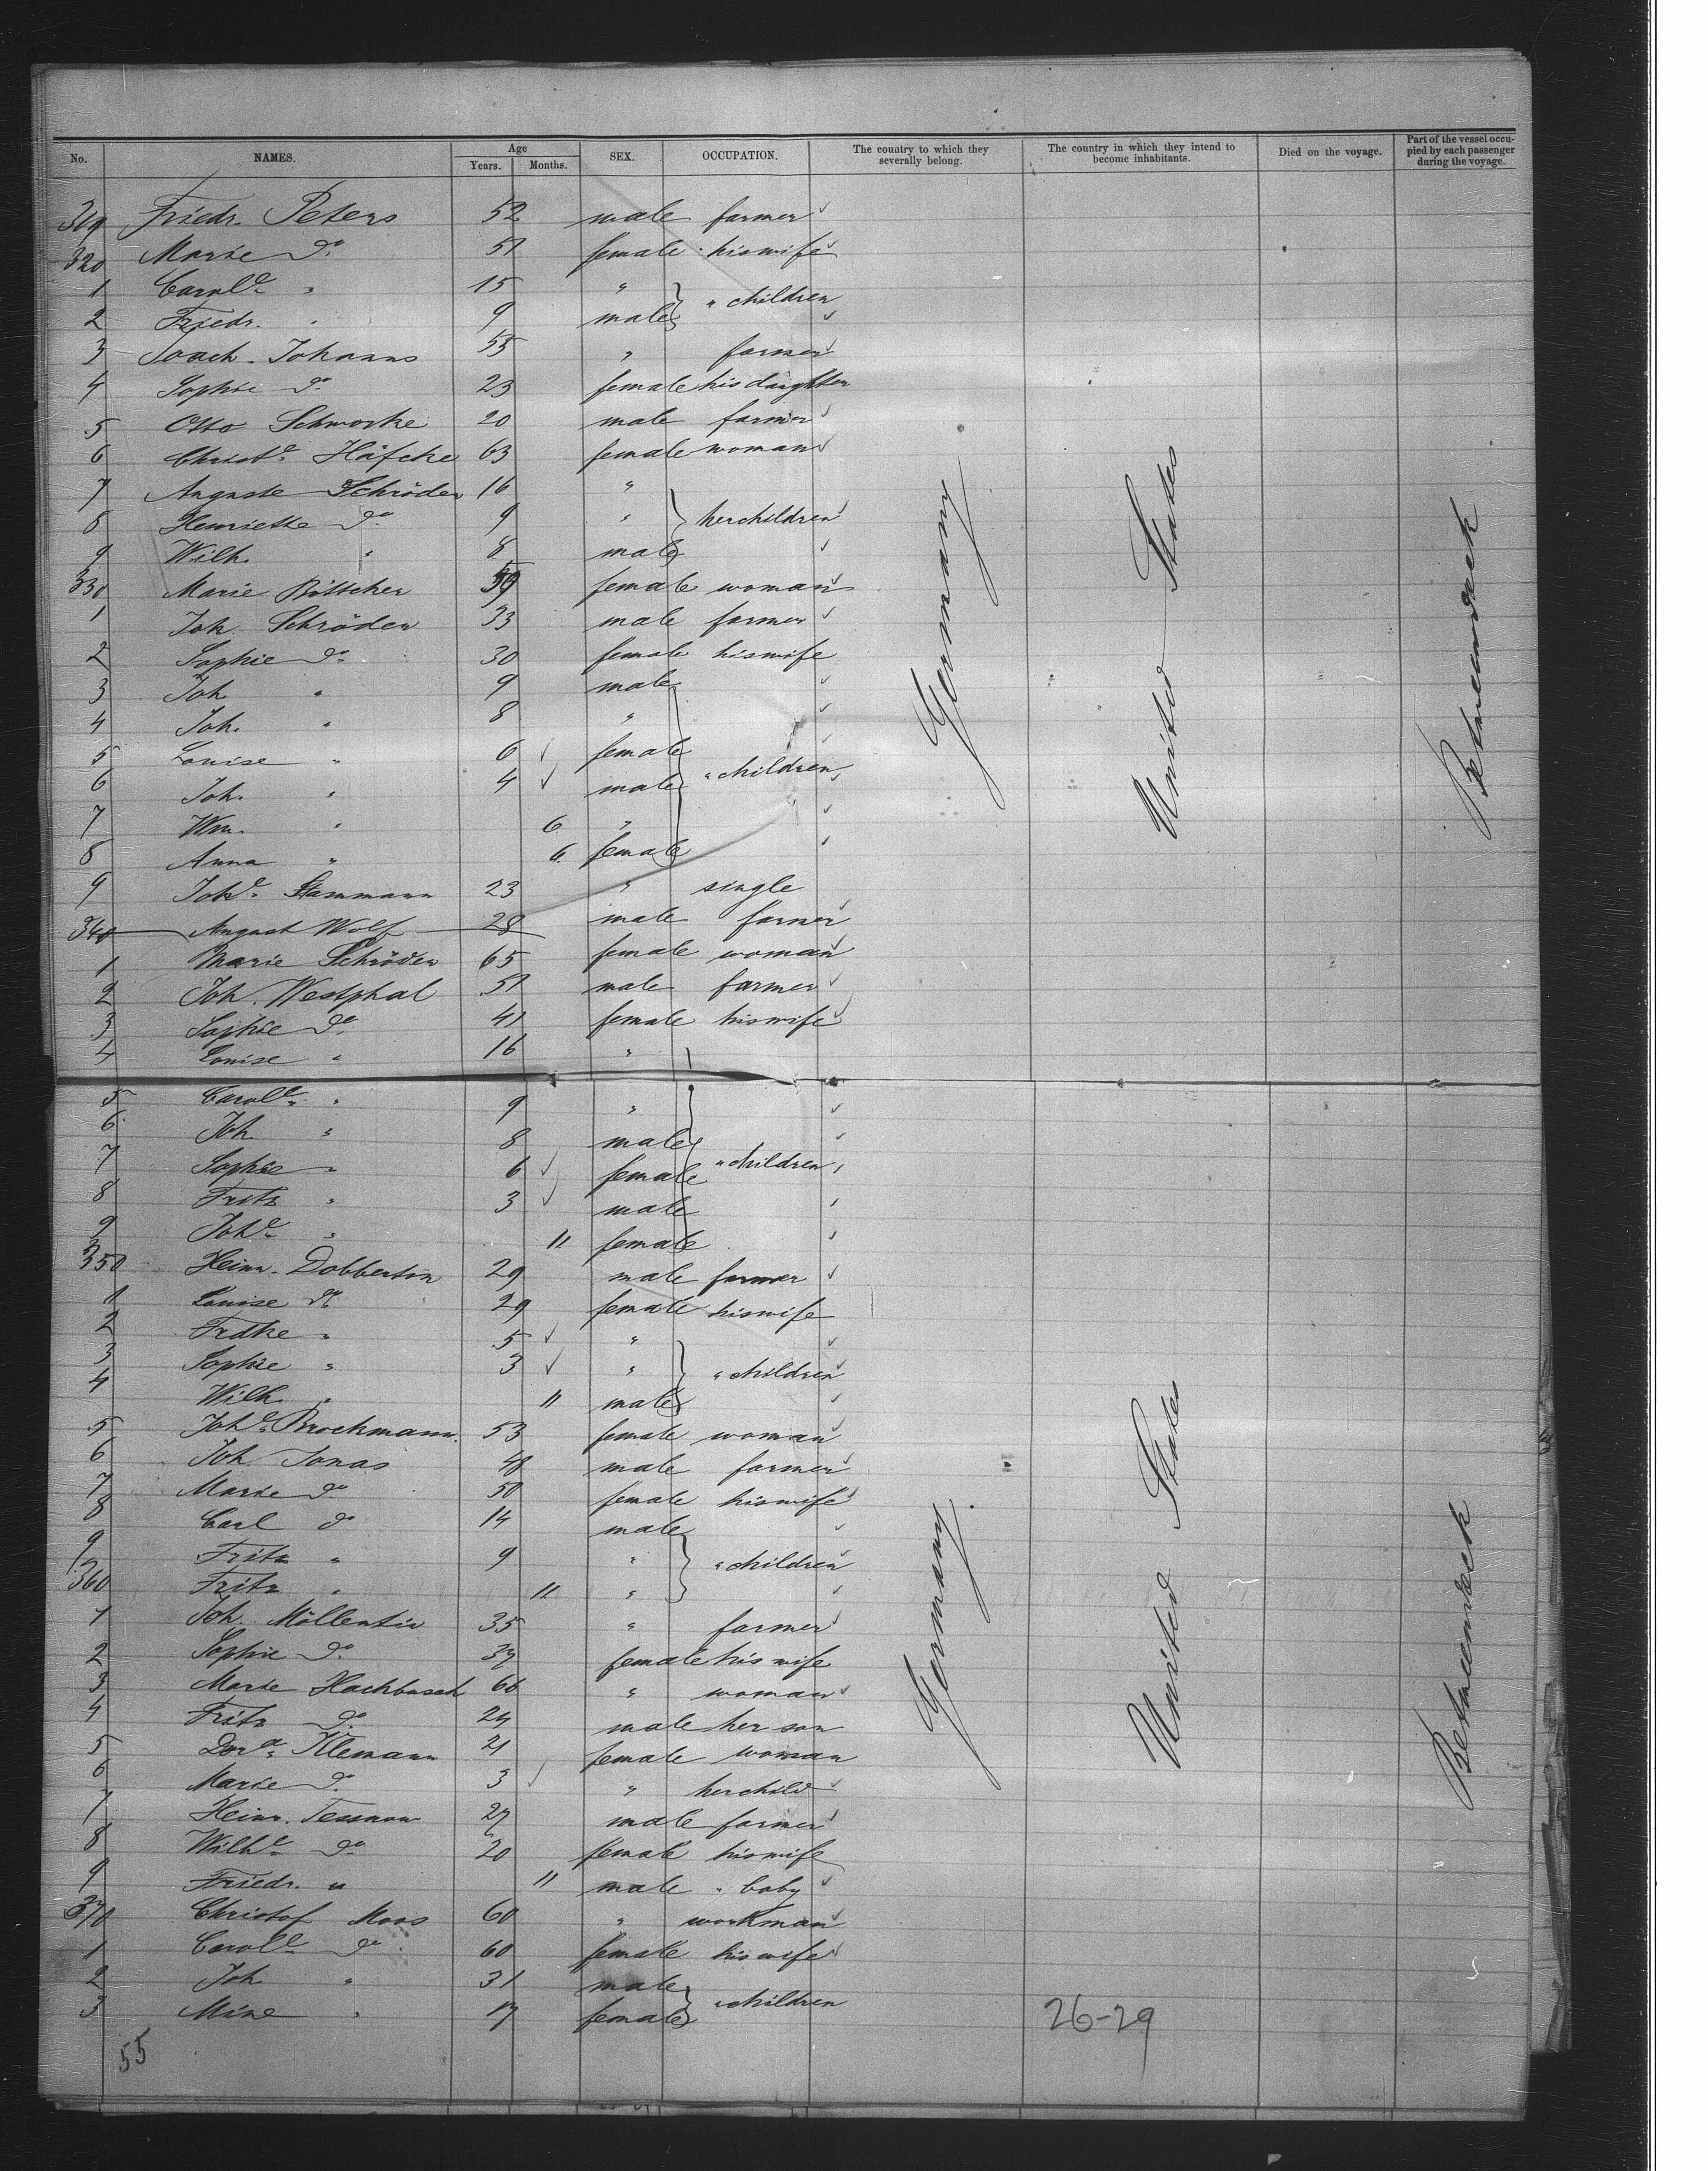 No. NAMES. Age Years. Months. SEX. OCCUPATION. The country to which they severally belong. The country in which they intend to become inhabitants. Died on the voyage. Part of the vessel occupied by each passenger during the voyage.
319 Friedr. Peters 52 male farmer
320 Marie do 51 female his wife
1 Carole " 15 "
2 Friedr. " 9 male } " children
3 Joach. Johanns 55 " farmer
4 Sophie do 23 female his daughter
5 Otto Schworke 20 male farmer
6 Christe Häfcke 63 female woman
7 Auguste Schröder 16 "
8 Henriette do 9 " } her children
9 Wilh. " 8 male
330 Marie Böttcher female woman
1 Joh. Schröder 33 male farmer
2 Sophie do 30 female his wife
3 Joh " 9 male
4 Joh. " 8 "
5 Louise " 6 female
6 Joh. " 4 male } " children
7 Wm. " 6 "
8 Anna " 6 female
9 Johe Stammann 23 " single
340 August Wolf 28 male farmer
1 Marie Schröder 65 female woman
2 Joh. Westphal 51 male farmer
3 Sophie do 41 female his wife
4 Louise " 16 "
5 Carole " 9 "
6 Joh " 8 male
7 Sophie " 6 female } " children
8 Fritz " 3 male
9 Johe " 11 female
350 Heinr. Dobbertin 29 male farmer
1 Louise do 29 female his wife
2 Frdke " 5 "
3 Sophie " 3 " } " children
4 Wilh. " 11 male
5 Johe Brockmann. 53 female woman
6 Joh. Jonas 48 male farmer
7 Marie do 50 female his wife
8 Carl do 14 male
9 Fritz " 9 " } " children
360 Fritz " 11 "
1 Joh. Möllentin 35 " farmer
2 Sophie do female his wife
3 Marie Hachbusch 66 " woman
4 Fritz do 24 male her son
5 Dora Klemann 21 female woman
6 Marie do 3 " her child
7 Heinr. Tessnow 27 male farmer
8 Wilhe do 20 female his wife
9 Friedr. " 11 male " baby
370 Christof Moos 60 " workman
1 Carole do 60 female his wife
2 Joh " 31 male
3 Mine " 17 female } " children
Germany
United States
Betweendeck
Germany.
United States
Betweendeck
26-29
55